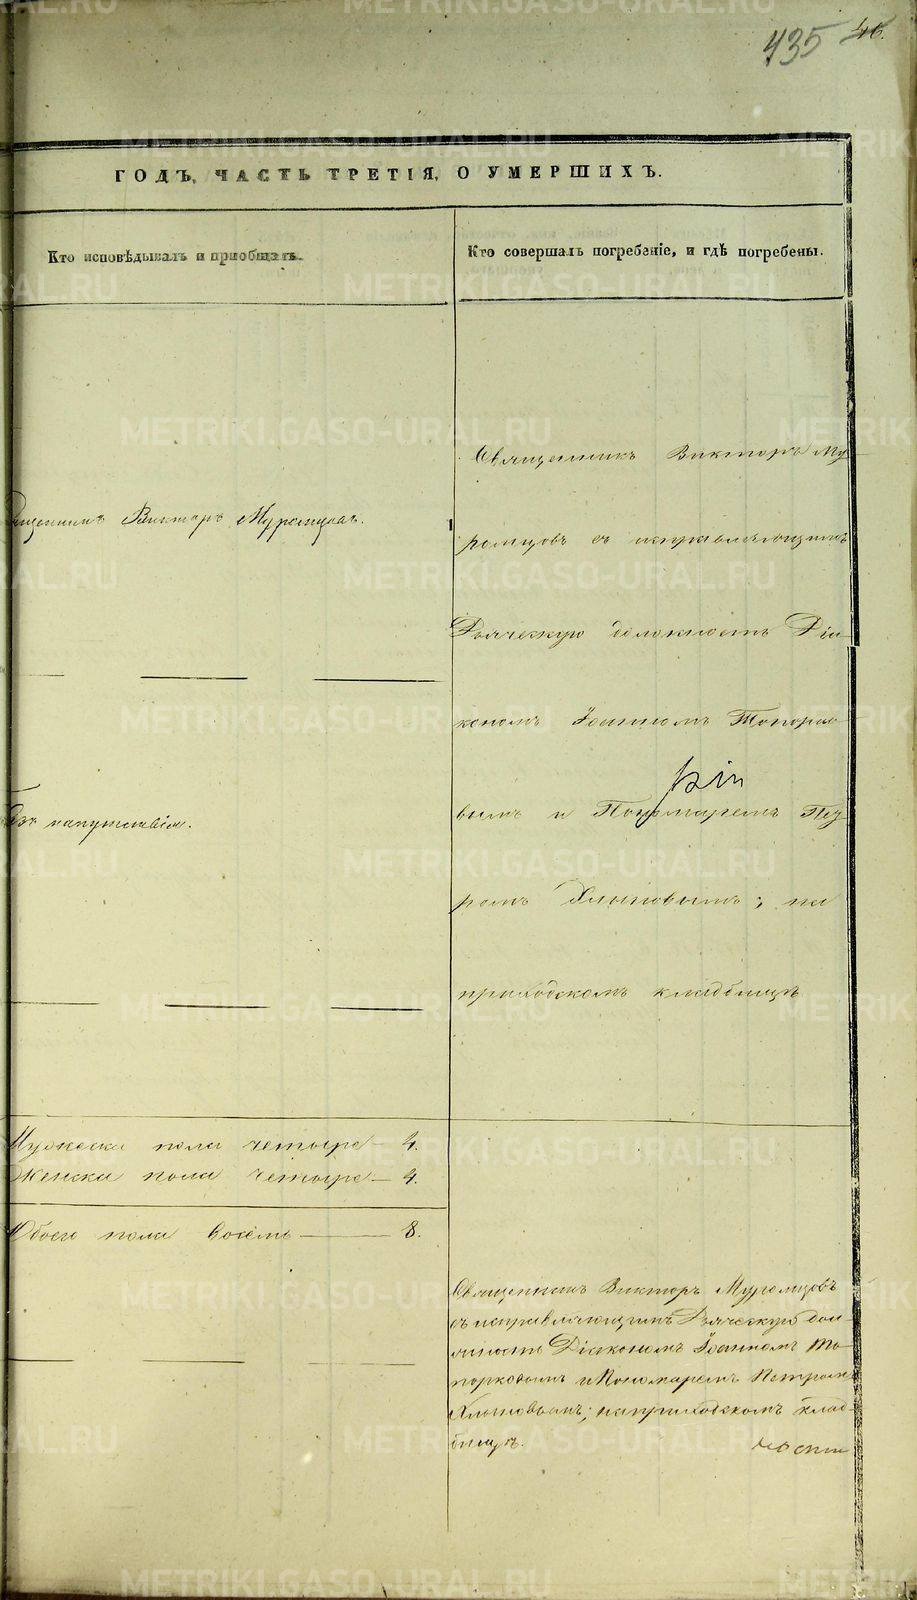 435 46.
ГОДЪ, ЧАСТЬ ТРЕТІЯ, О УМЕРШИХЪ.
Кто исповѣдывалъ и пріобщалъ.
Кто совершалъ погребеніе, и гдѣ погребены.
Священникъ Викторъ Му-
ромцовъ съ исправляющимъ
Дьяческую должность Діа-
кономъ Іоанномъ Топорко-
вымъ и Пономаремъ Пет-
ромъ Хлыновымъ; на
приходскомъ кладбищѣ
Викторъ Муромцовъ.
Безъ напутствія.
Мужеска пола четыре — 4.
Женска пола четыре — 4.
Обоего пола восемь — 8.
Священникъ Викторъ Муромцовъ
съ исправляющимъ Дьяческую дол-
жность Діакономъ Іоанномъ То-
порковымъ и Пономаремъ Петромъ
Хлыновымъ; на приходскомъ клад-
бищѣ.
METRIKI.GASO-URAL.RU